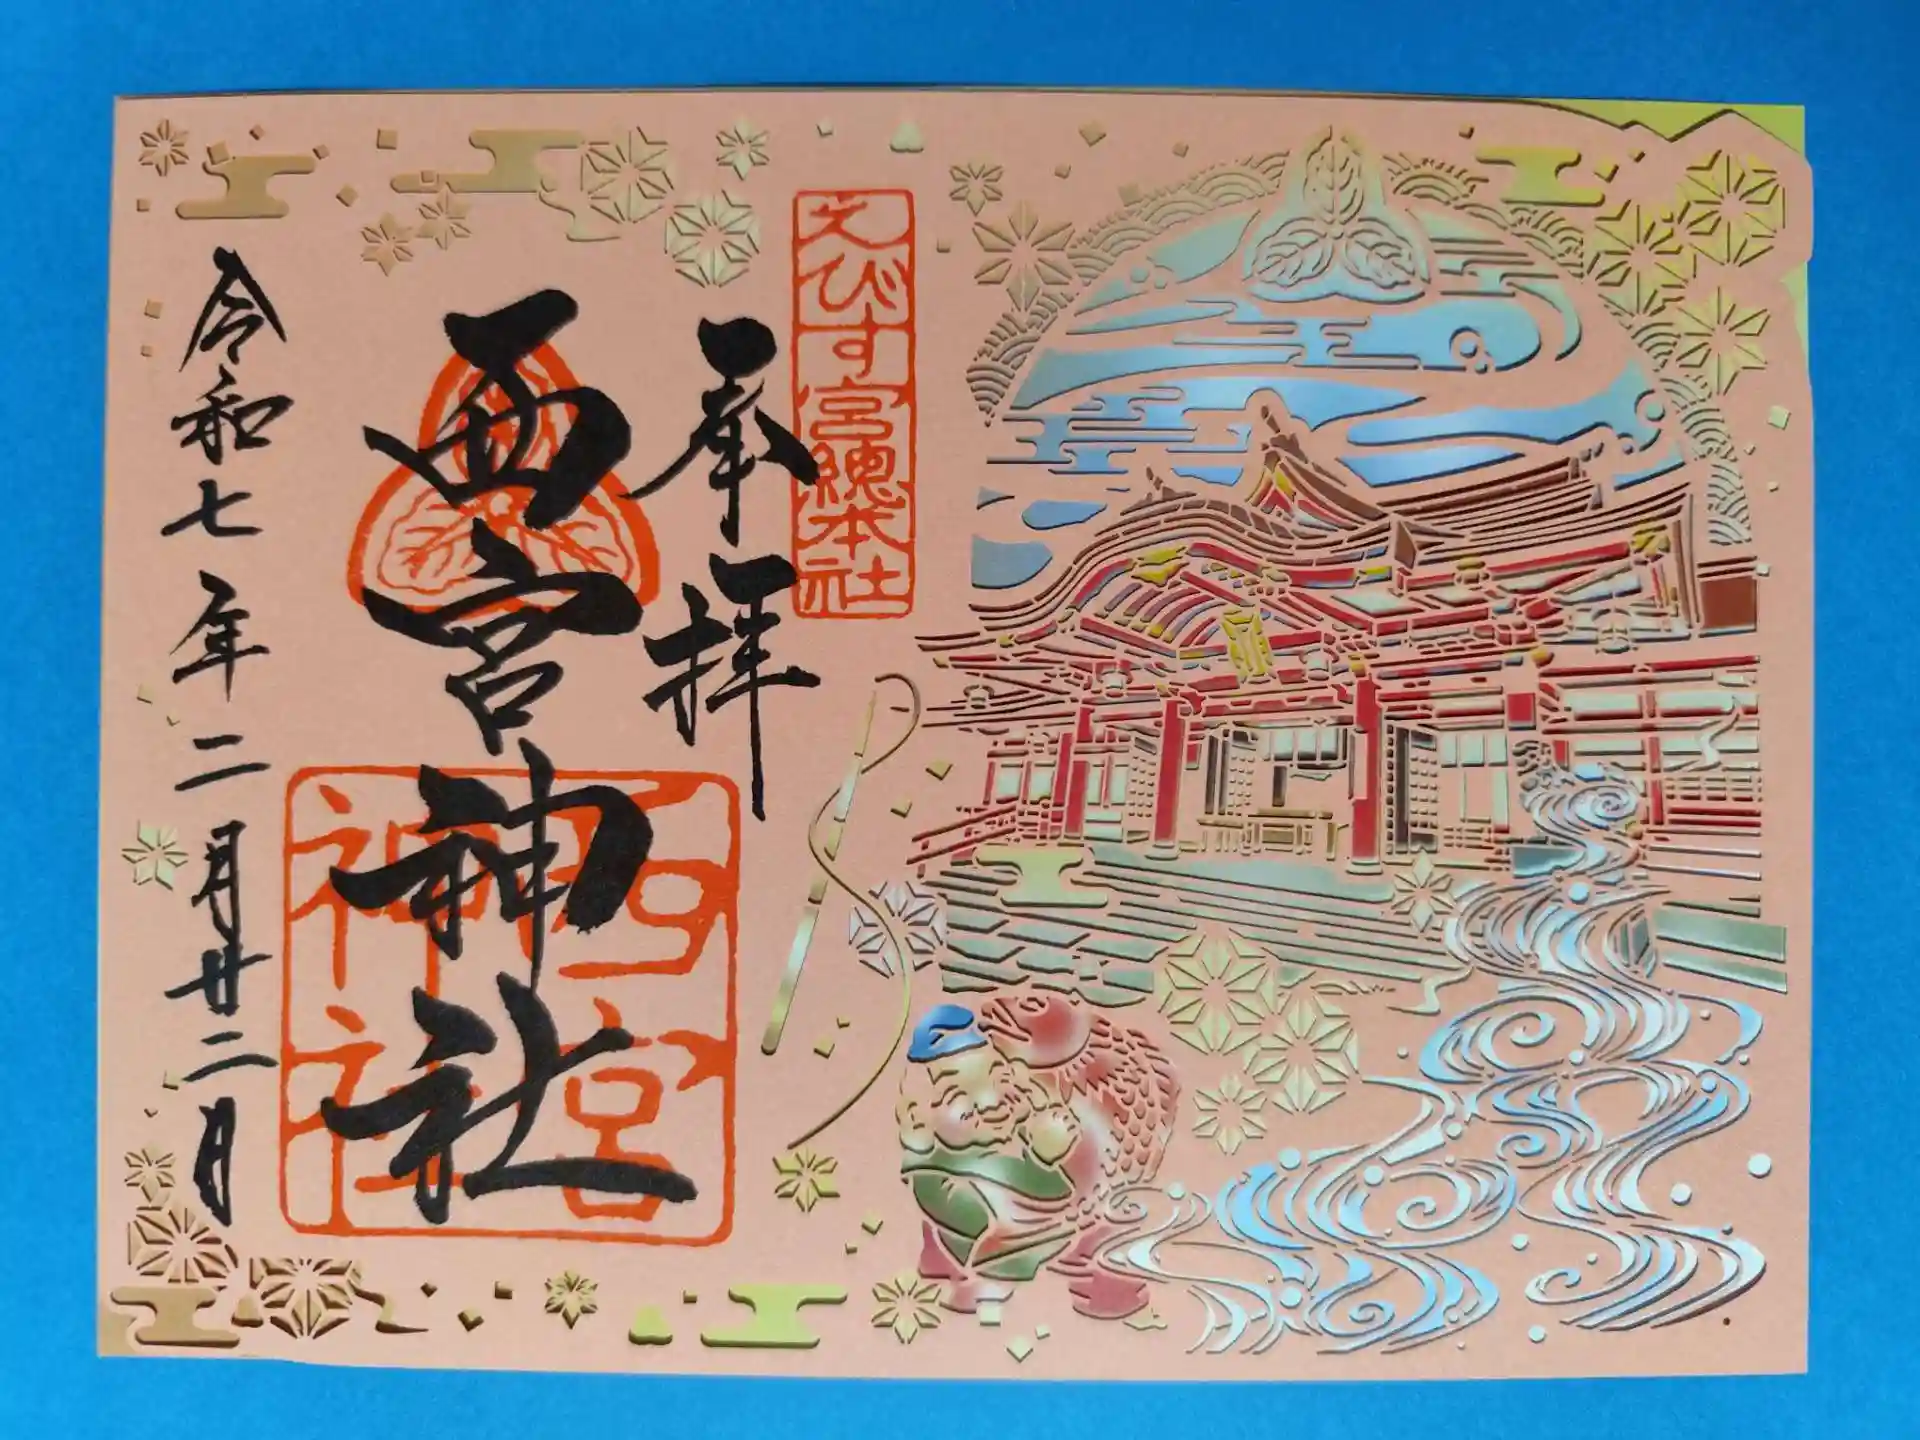 えびす宮總本社
奉拝
西宮神社
西宮神社
令和七年二月廿二日